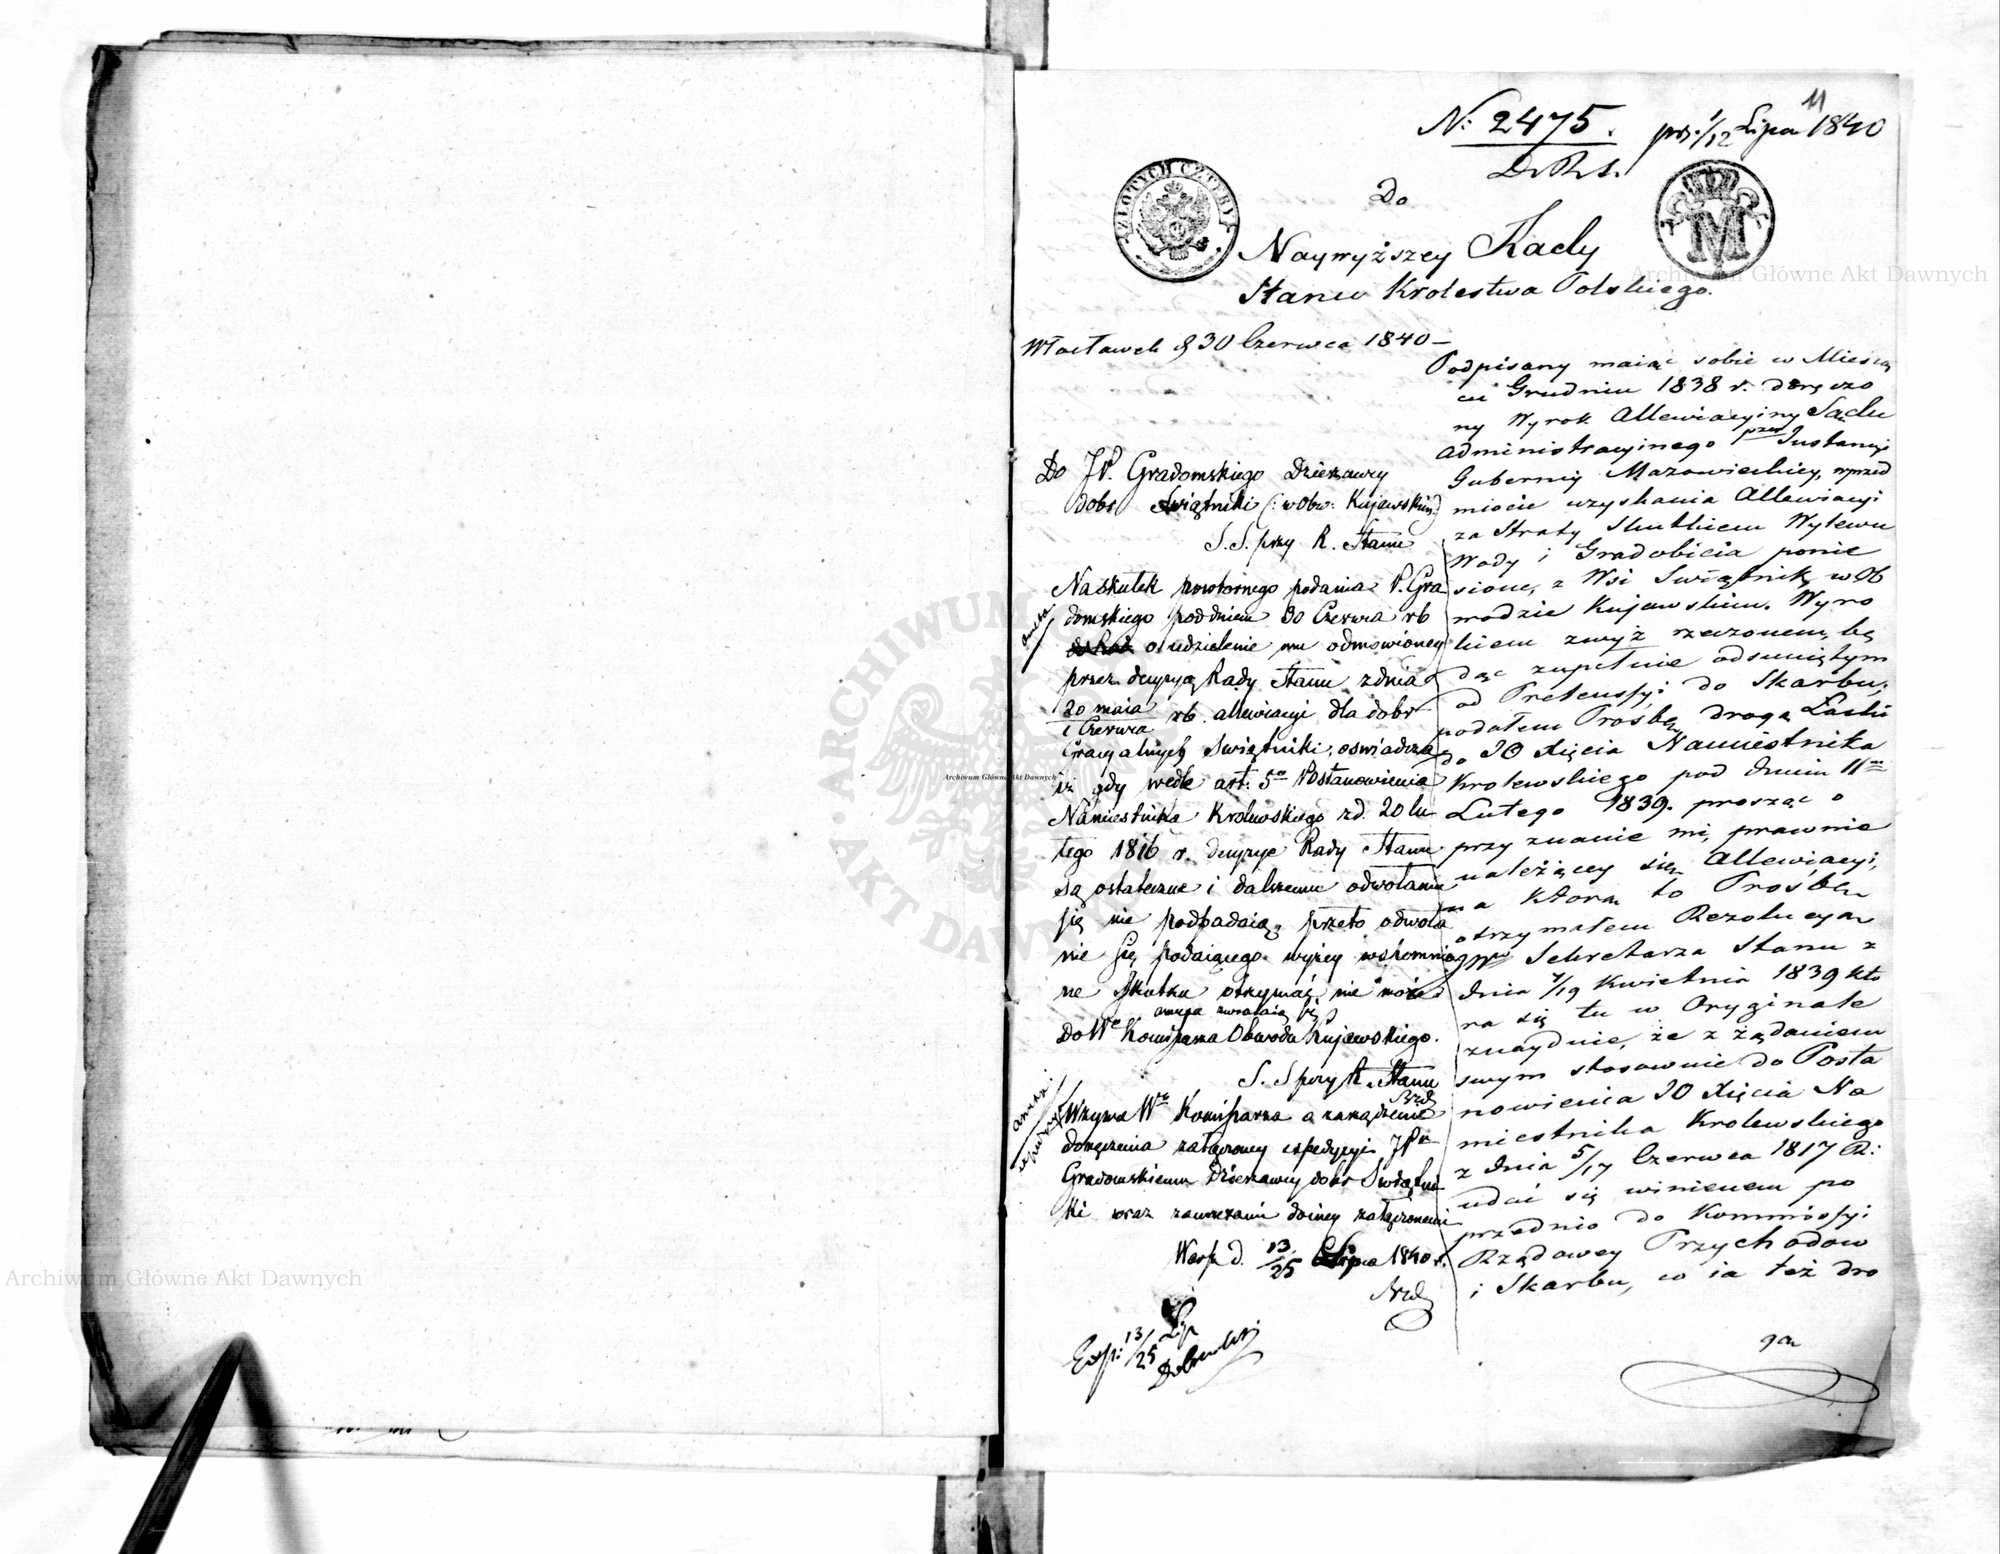 11
N: 2475. prz. 1/12 Lipca 1840
D.R.S.
ZŁOTYCH CZTERY
M
Do
Naywyższey Rady
Stanu Krolestwa Polskiego.
Włocławek d 30 Czerwca 1840 –
Podpisany maiąc sobie w Miesią
cu Grudniu 1838 r. doręczo
ny Wyrok Allewiacyiny Sądu
Administracyinego przy Instancyi
Gubernii Mazowieckiey, wprzed
miocie uzyskania Allewiacyi
za Straty Skutkiem Wylewu
Wody i Gradobicia ponie
sione, z Wsi Swiątnik w Ob
wodzie Kujawskim. Wyro
kiem zwyż rzeczonem, bę
dąc zupełnie odsuniętym
od Pretensyi do Skarbu,
podałem Prośbę drogą Łaski
do JO Xięcia Namiestnika
Krolewskiego pod dniem 11m
Lutego 1839. prosząc o
przyznanie mi, prawnie
należącey się Allewiacyi,
na ktorą to Prośbę
otrzymałem Rezolucyą
JW Sekretarza Stanu z
dnia 7/19 Kwietnia 1839 kto
ra się tu w Oryginale
znayduie, że z żądaniem
swym stosownie do Posta
nowienia JO Xięcia Na
miestnika Krolewskiego
z dnia 5/17 Czerwca 1817 R:
udać się winienem po
przednio do Kommissyi
Rządowey Przychodow
i Skarbu, co ia też dro
ga
Do JP. Gradomskiego Dzierzawcy
dobr Swiątniki (: w Obw: Kujawskim)
S. S. przy R. Stanu
Na skutek powtornego podania P. Gra
domskiego pod dniem 30 Czerwca rb
o udzielenie mu odmowioney
przez decyzyą Rady Stanu z dnia
20 maia
1 Czerwca rb. allewiacyi dla dobr
Swiątniki, oswiadcza
iż gdy wedle art: 5go Postanowienia
Namiestnika Krolewskiego z d. 20 lu
tego 1816 r. decyzye Rady Stanu
są ostateczne i dalszemu odwołaniu
się nie podpadaią, przeto odwoła
nie się podaiącego wyżey wspomnio
ne skutku otrzymać nie może.
annexa zwracaią się
Do Wo Kommissarza Obwodu Kujawskiego.
S. S przy R. Stanu
Wzywa Wo Kommissarza o zarządzenie
doręczenia załączoney expedycyi JPu
Gradomskiemu Dzierzawcy dobr Swiątni
ki wraz załączonemi
Warsz d. 13/25 Lipca 1840 r.
Exp: 13/25 Lip
Archiwum Główne Akt Dawnych
Archiwum Główne Akt Dawnych
Archiwum Główne Akt Dawnych
ARCHIWUM
AKT DAWN